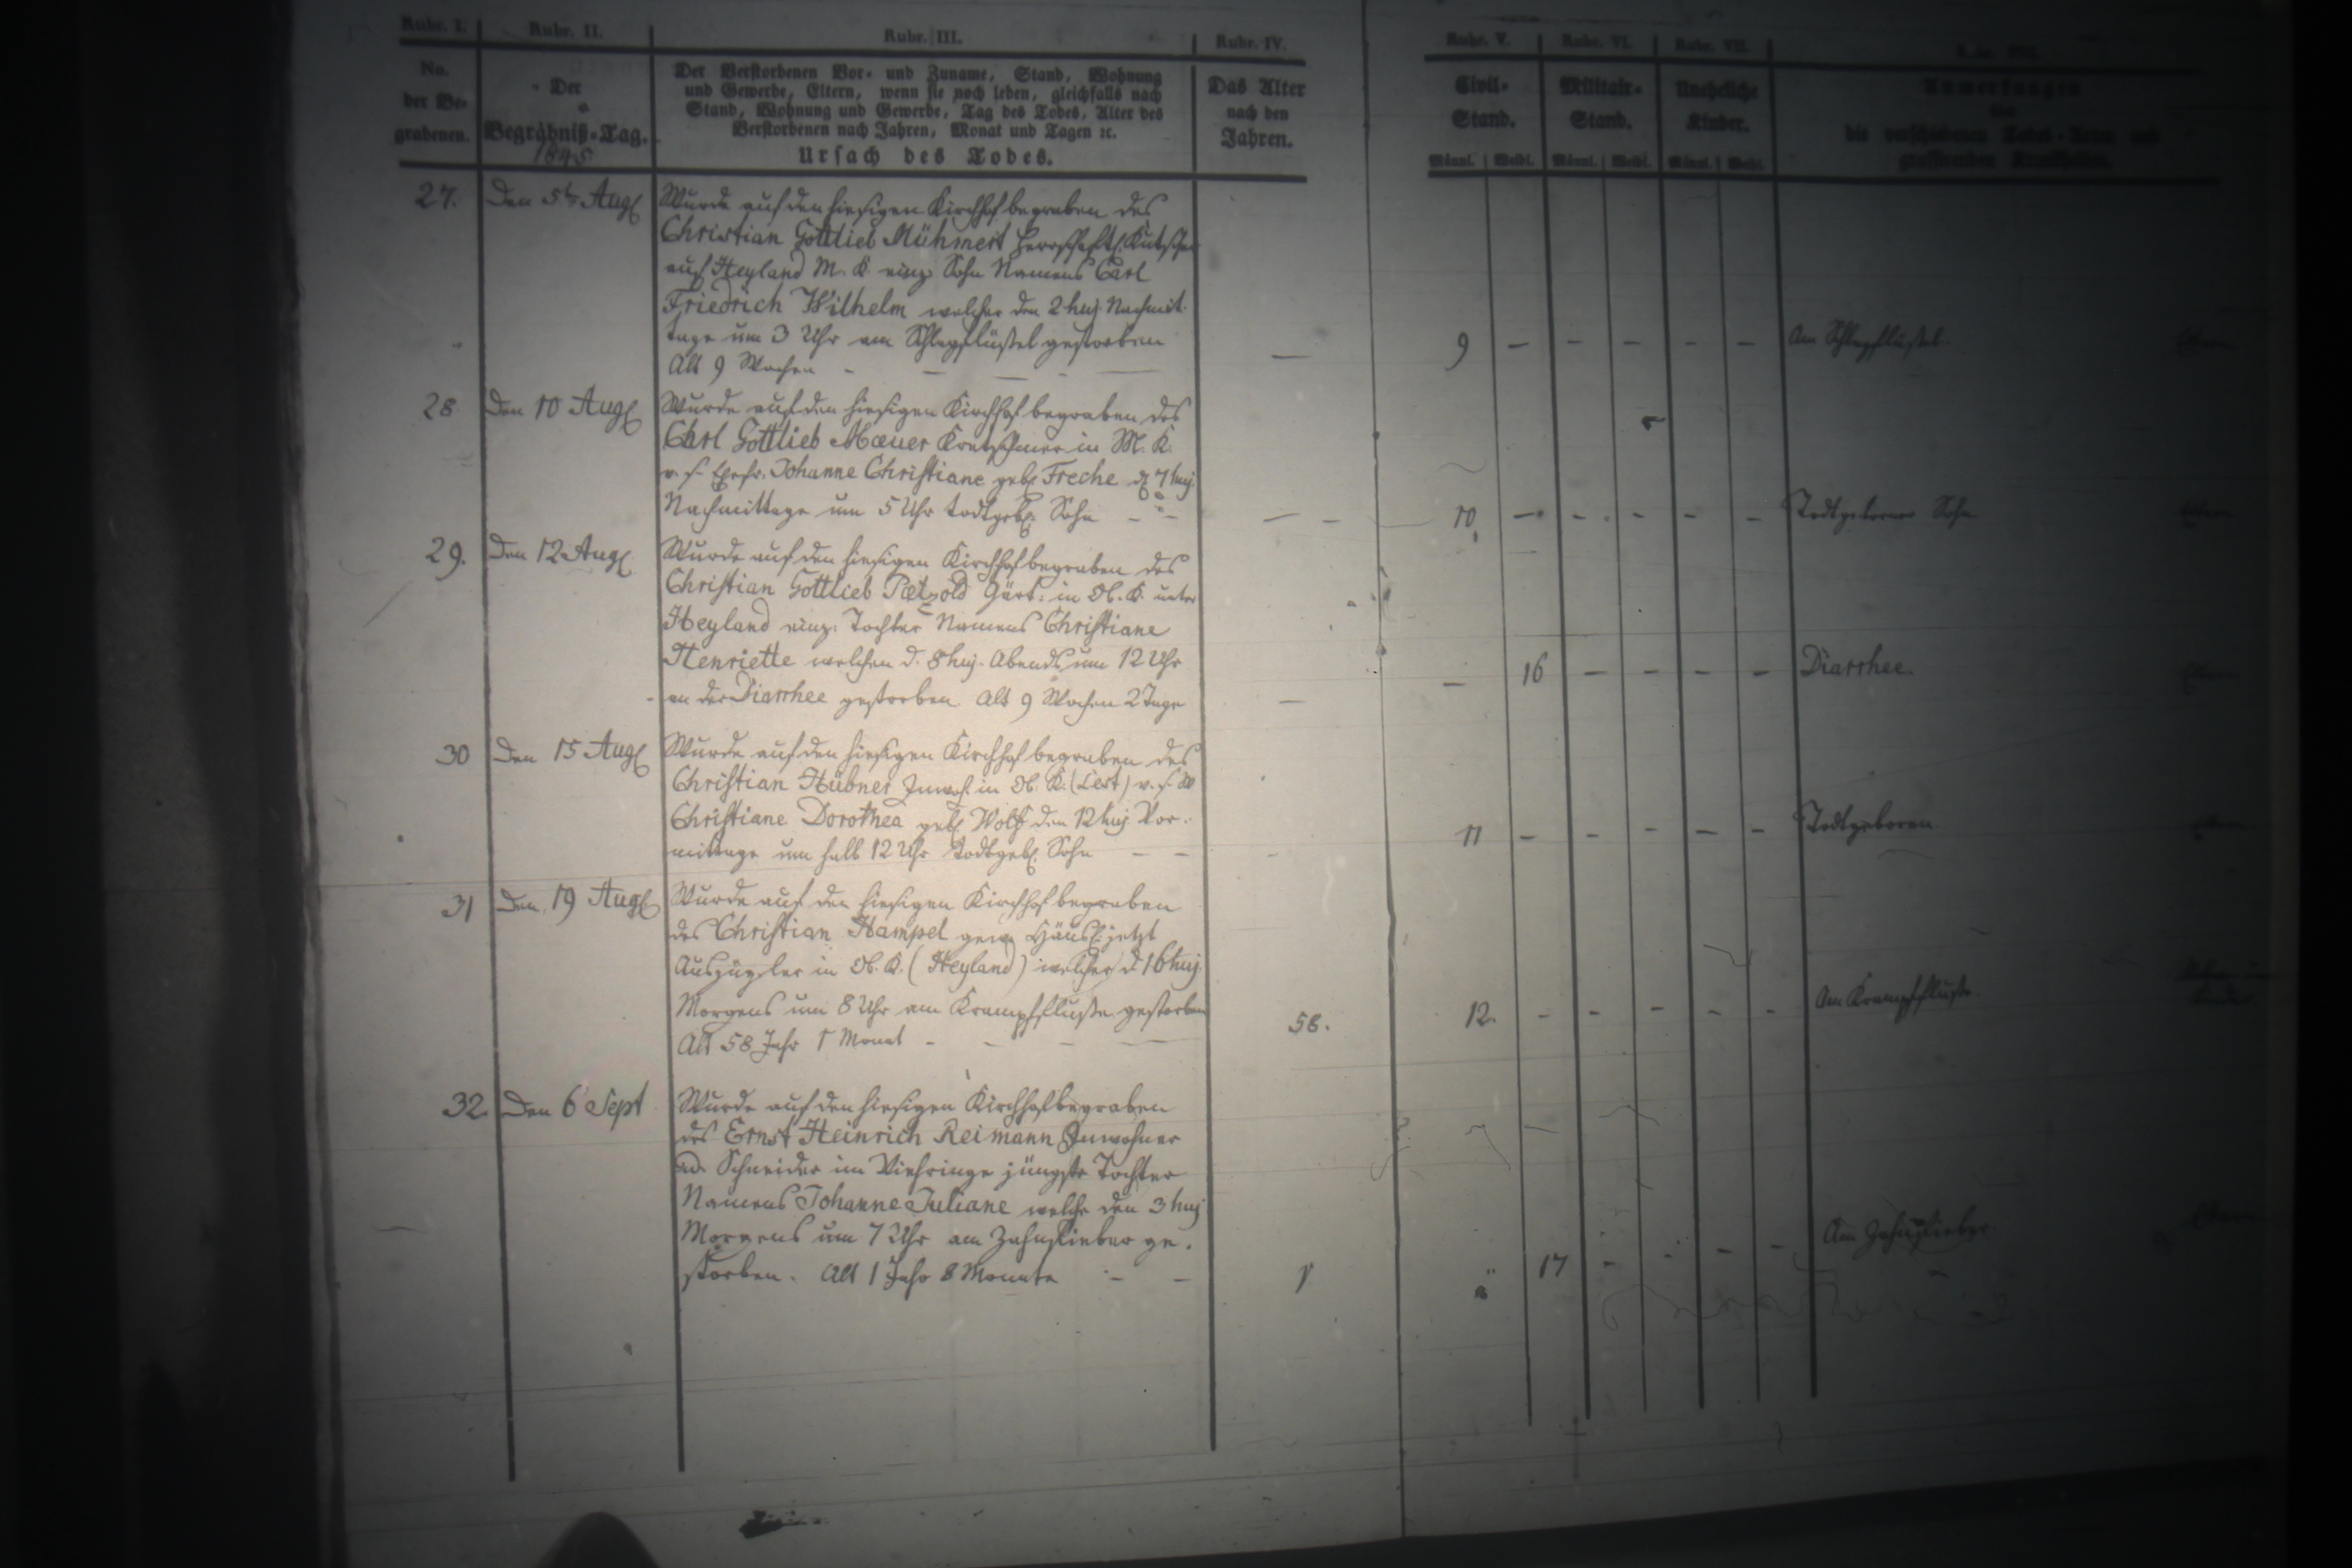 Rubr. I.
Rubr. II.
Rubr. III.
Rubr. IV.
Rubr. V.
Rubr. VI.
Rubr. VII.
No.
der Be-
grabenen.
Der
Begräbniß-Tag.
1845
Der Verstorbenen Vor- und Zuname, Stand, Wohnung
und Gewerbe, Eltern, wenn sie noch leben, gleichfalls nach
Stand, Wohnung und Gewerbe, Tag des Todes, Alter des
Verstorbenen nach Jahren, Monat und Tagen ꝛc.
Ursach des Todes.
Das Alter
nach den
Jahren.
Civil-
Stand.
Militair-
Stand.
Uneheliche
Kinder.
Anmerkungen
die verschiedenen Todes-Arten und
grassirenden Krankheiten.
Männl. Weibl. Männl. Weibl. Männl. Weibl.
27. Den 5ten Augl Wurde auf den hiesigen Kirchhof begraben des
Christian Gottlieb Mühmert herrschaftl. Kutscher
auf Heyland M. K. einz. Sohn Namens Carl
Friedrich Wilhelm welcher den 2 huj. Nachmit-
tags um 3 Uhr am Schlagflüßel gestorben
Alt 9 Wochen - — — - —
— 9 — - - - - Am Schlagflüßel.
28 Den 10 Augl Wurde auf den hiesigen Kirchhof begraben des
Carl Gottlieb Mæuer Kretschmer in M. K.
v. s. Ehefr. Johanne Christiane geb. Freche d. 7 huj.
Nachmittage um 5 Uhr todtgeb. Sohn - -
— - 10. - - - - - Todtgeborner Sohn
29. Den 12 Augl Wurde auf den hiesigen Kirchhof begraben des
Christian Gottlieb Pætzold Gärt: in Ob. K. unter
Heyland einz. Tochter Namens Christiane
Henriette welchen d. 8 huj. Abends um 12 Uhr
an der Diarrhee gestorben. Alt 9 Wochen 2 Tage
— — 16 - - - - Diarrhee.
30 Den 15 Augl Wurde auf den hiesigen Kirchhof begraben des
Christian Hübner Inwoh. in Ob. K. (Lest) v. s. W
Christiane Dorothea geb. Wolf den 12 huj. Vor-
mittage um halb 12 Uhr todtgeb. Sohn - -
- 11 - - - - - Todtgeboren
31 Den 19 Augl Wurde auf den hiesigen Kirchhof begraben
des Christian Hampel gew. Häusl. jetzt
Auszügler in Ob. K. (Heyland) welcher d. 16 huj.
Morgens um 8 Uhr am Krampfflusse gestorben
Alt 58 Jahr 1 Monat - - - —
58. 12. - - - - - Am Krampfflusse.
32. Den 6 Sept Wurde auf den hiesigen Kirchhof begraben
des Ernst Heinrich Reimann Inwohner
u. Schneider im Viehringe jüngste Tochter
Namens Johanne Juliane welche den 3 huj
Morgens um 7 Uhr am Zahnfieber ge-
storben. Alt 1 Jahr 8 Monate - -
1 " 17 - - - - Am Zahnfieber.